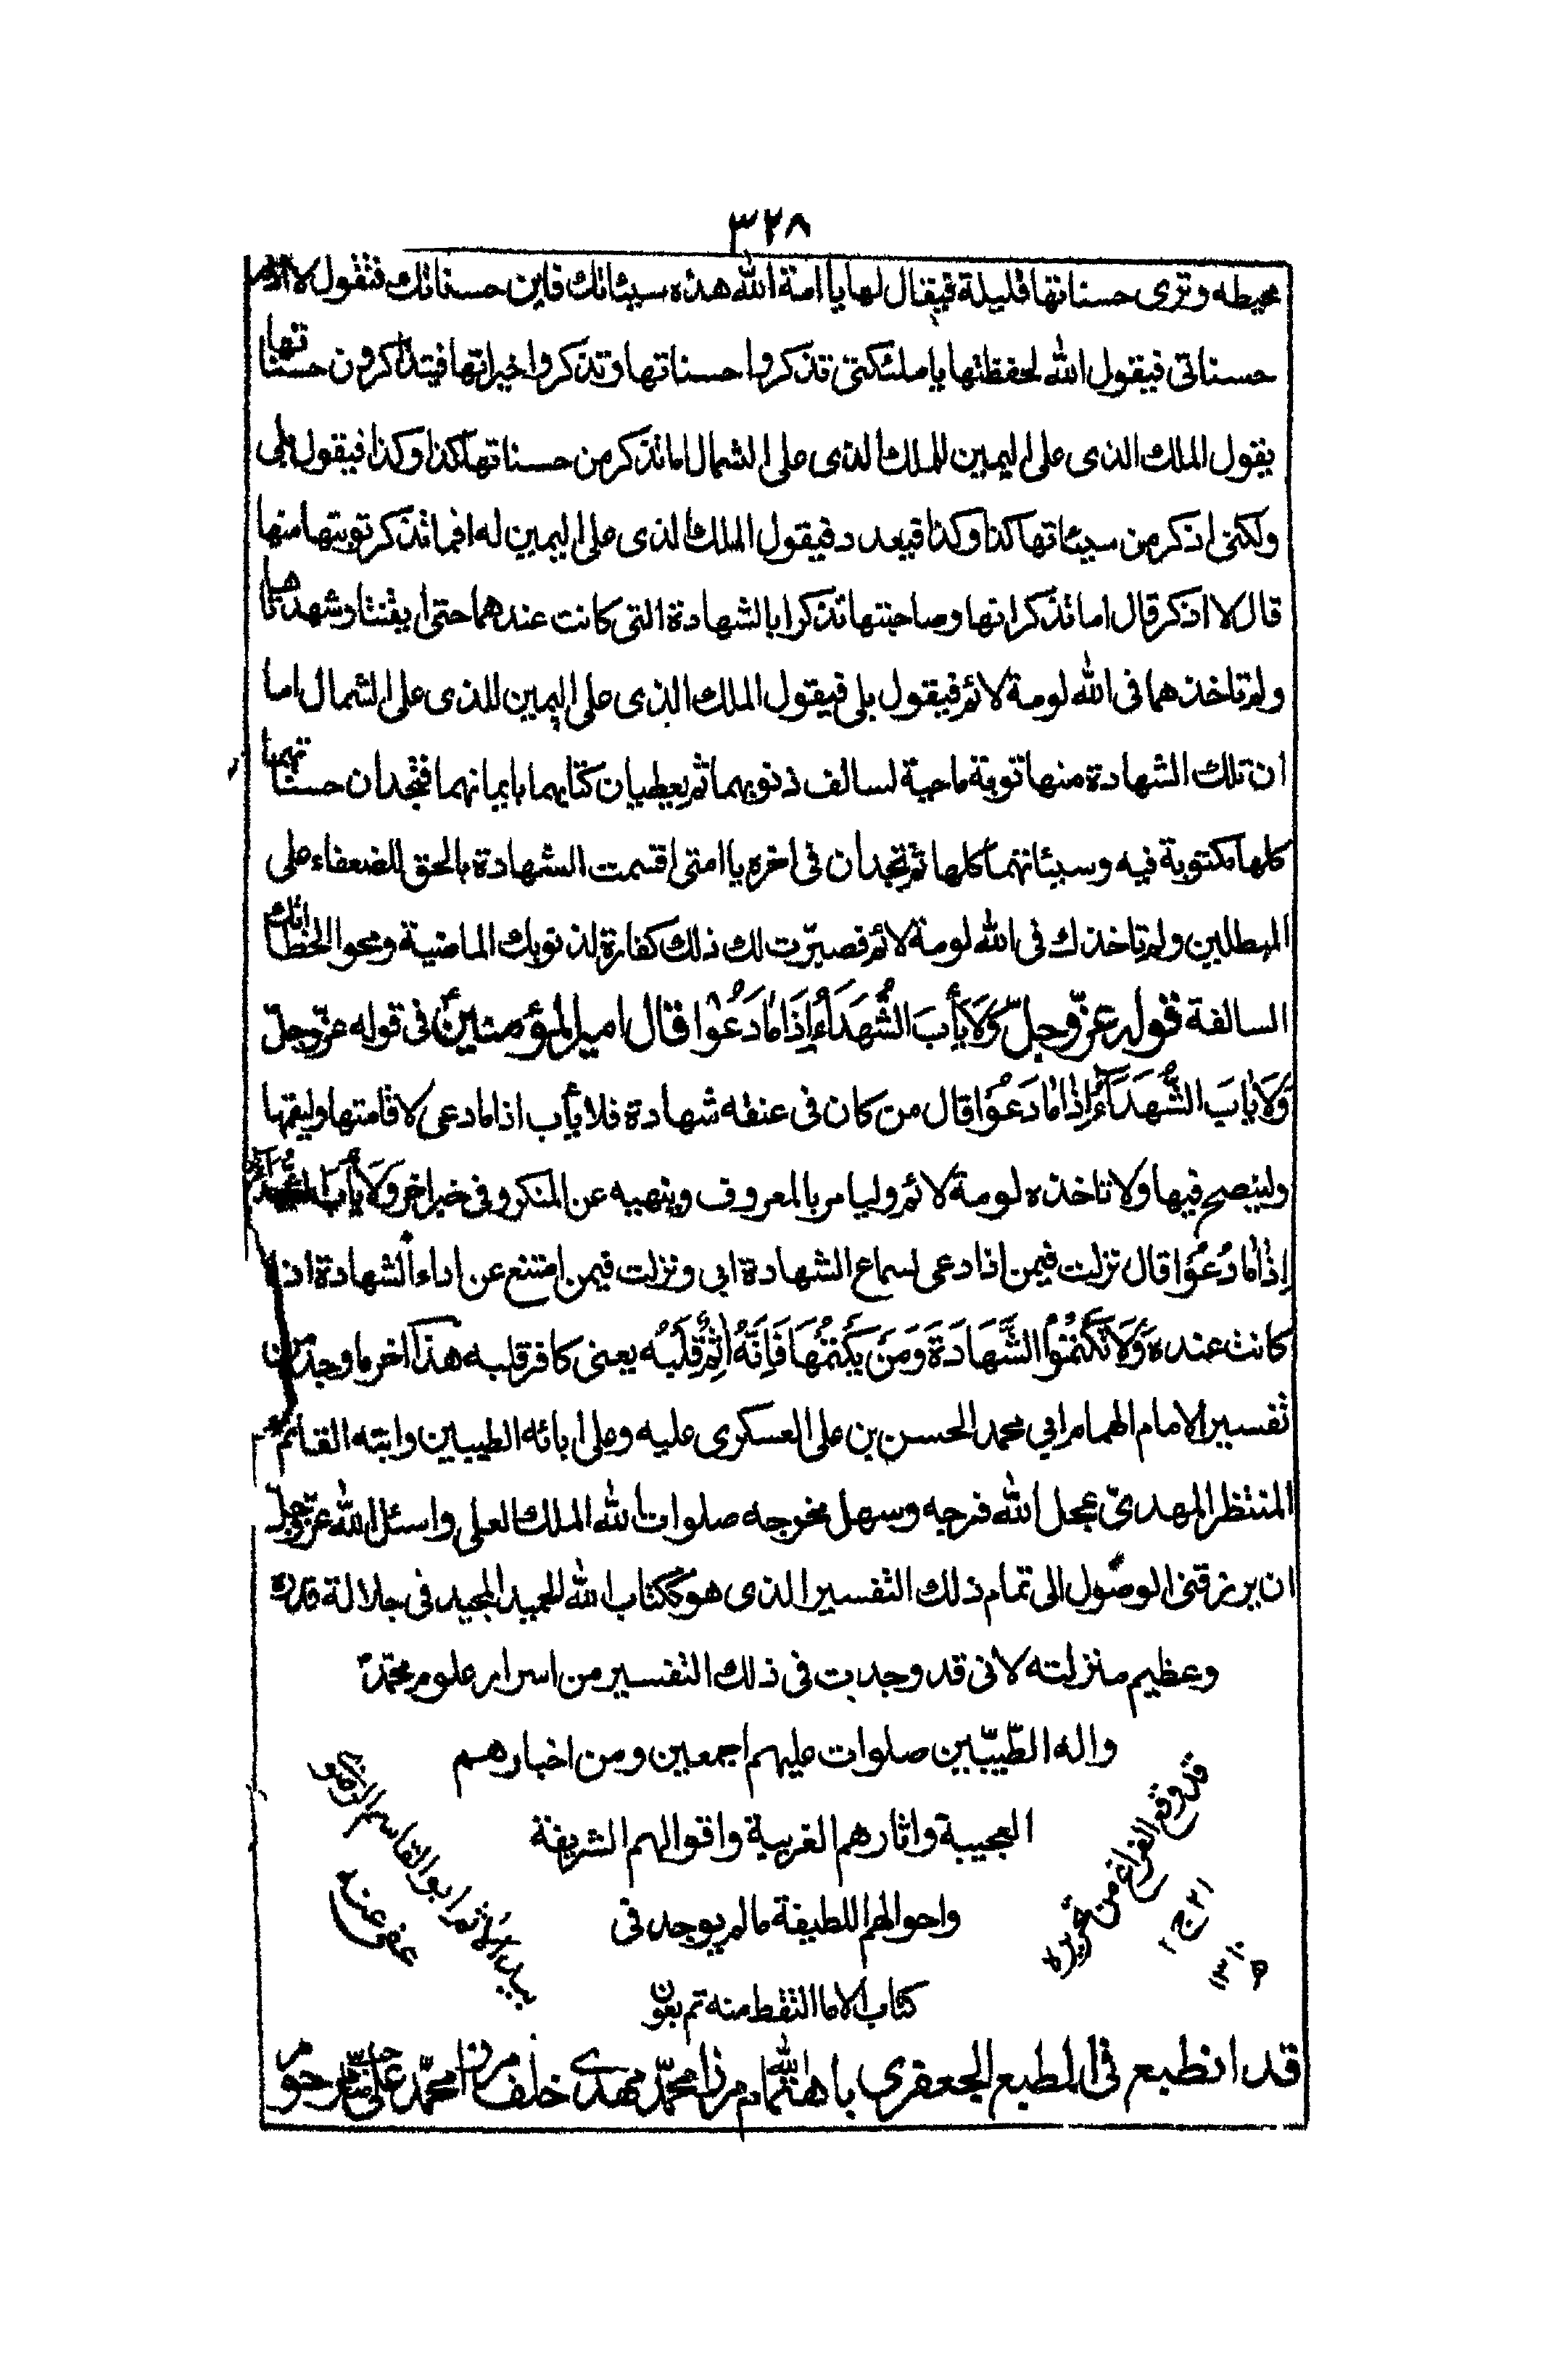 ٣٢٨
محيطه وترى حسناتها قليلة فيقال لها يا امة الله هذه سيئاتك فاين حسناتك فتقول لا اذكر
حسناتى فيقول الله لحفظتها يا ملئكتى تذكروا حسناتها وتذكروا خيراتها فيتذاكرون حسناتها
يقول الملك الذى على اليمين للملك الذى على الشمال اما تذكر من حسناتها كذا وكذا فيقول بلى
ولكنى اذكر من سيئاتها كذا وكذا فيعدد فيقول الملك الذى على اليمين له افما تذكر توبتها منها
قال لا اذكر قال اما تذكر انها وصاحبتها تذكرا بالشهادة التى كانت عندهما حتى ايقنتا وشهدتاها
ولم تاخذهما فى الله لومة لائم فيقول بلى فيقول الملك الذى على اليمين للذى على الشمال اما
ان تلك الشهادة منها توبة ماحية لسالف ذنوبهما ثم يعطيان كتابهما بايمانهما فتجدان حسناتهما
كلها مكتوبة فيه وسيئاتهما كلها ثم تجدان فى اخره يا امتى اقسمت الشهادة بالحق للضعفاء على
المبطلين ولم تاخذك فى الله لومة لائم فصيرت لك ذلك كفارة لذنوبك الماضية ومحوا لخطاتك
السالفة قوله عزّ وجلّ وَلَا يَأْبَ الشُّهَدَاءُ إِذَا مَا دُعُوا قال امير المؤمنين فى قوله عزّ وجلّ
وَلَا يَابَ الشُّهَدَآءُ إِذَا مَا دُعُوا قال من كان فى عنقه شهادة فلا يأب اذا ما دعى لاقامتها وليقمها
ولينصح فيها ولا تاخذه لومة لائم وليامر بالمعروف وينهيه عن المنكر وفى خبر اخر وَلَا يَأْبَ الشُّهَدَآءُ
إِذَا مَا دُعُوا قال نزلت فيمن اذا دعى لسماع الشهادة ابى ونزلت فيمن امتنع عن اداء الشهادة اذا
كانت عنده وَلَا تَكْتُمُوا الشَّهَادَةَ وَمَنْ يَكْتُمْهَا فَإِنَّهُ اثِمٌ قَلْبُه يعنى كافر قلبه هذا اخر ما وجد من
تفسير الامام الهمام ابي محمد الحسن بن على العسكرى عليه وعلى ابائه الطيبين وابنه القائم
المنتظر المهدىّ عجل الله فرجه وسهل مخرجه صلوات الله الملك العلى واسئل الله عزّ وجلّ
ان يرزقنى الوصول الى تمام ذلك التفسير الذى هو ككتاب الله الحميد المجيد فى جلالة قدره
وعظيم منزلته لانى قد وجدت فى ذلك التفسير من اسرار علوم محمّد
واله الطّيّبين صلوات عليهم اجمعين ومن اخبارهم
العجيبة واثارهم الغريبة واقوالهم الشريفة
واحوالهم اللطيفة ما لم يوجد فى
كتاب الا ما التقط منه تم بعون
قد وقع الفراغ من تحريره
٢١ ج ٢
١٣١٠ ه
بيد الاثم ابو القاسم الرضوى
عفى عنه
قد انطبع فى المطبع الجعفرى باهتمام مرزا محمّد مهدى خلف مرزا محمّد على صاحب مرحوم